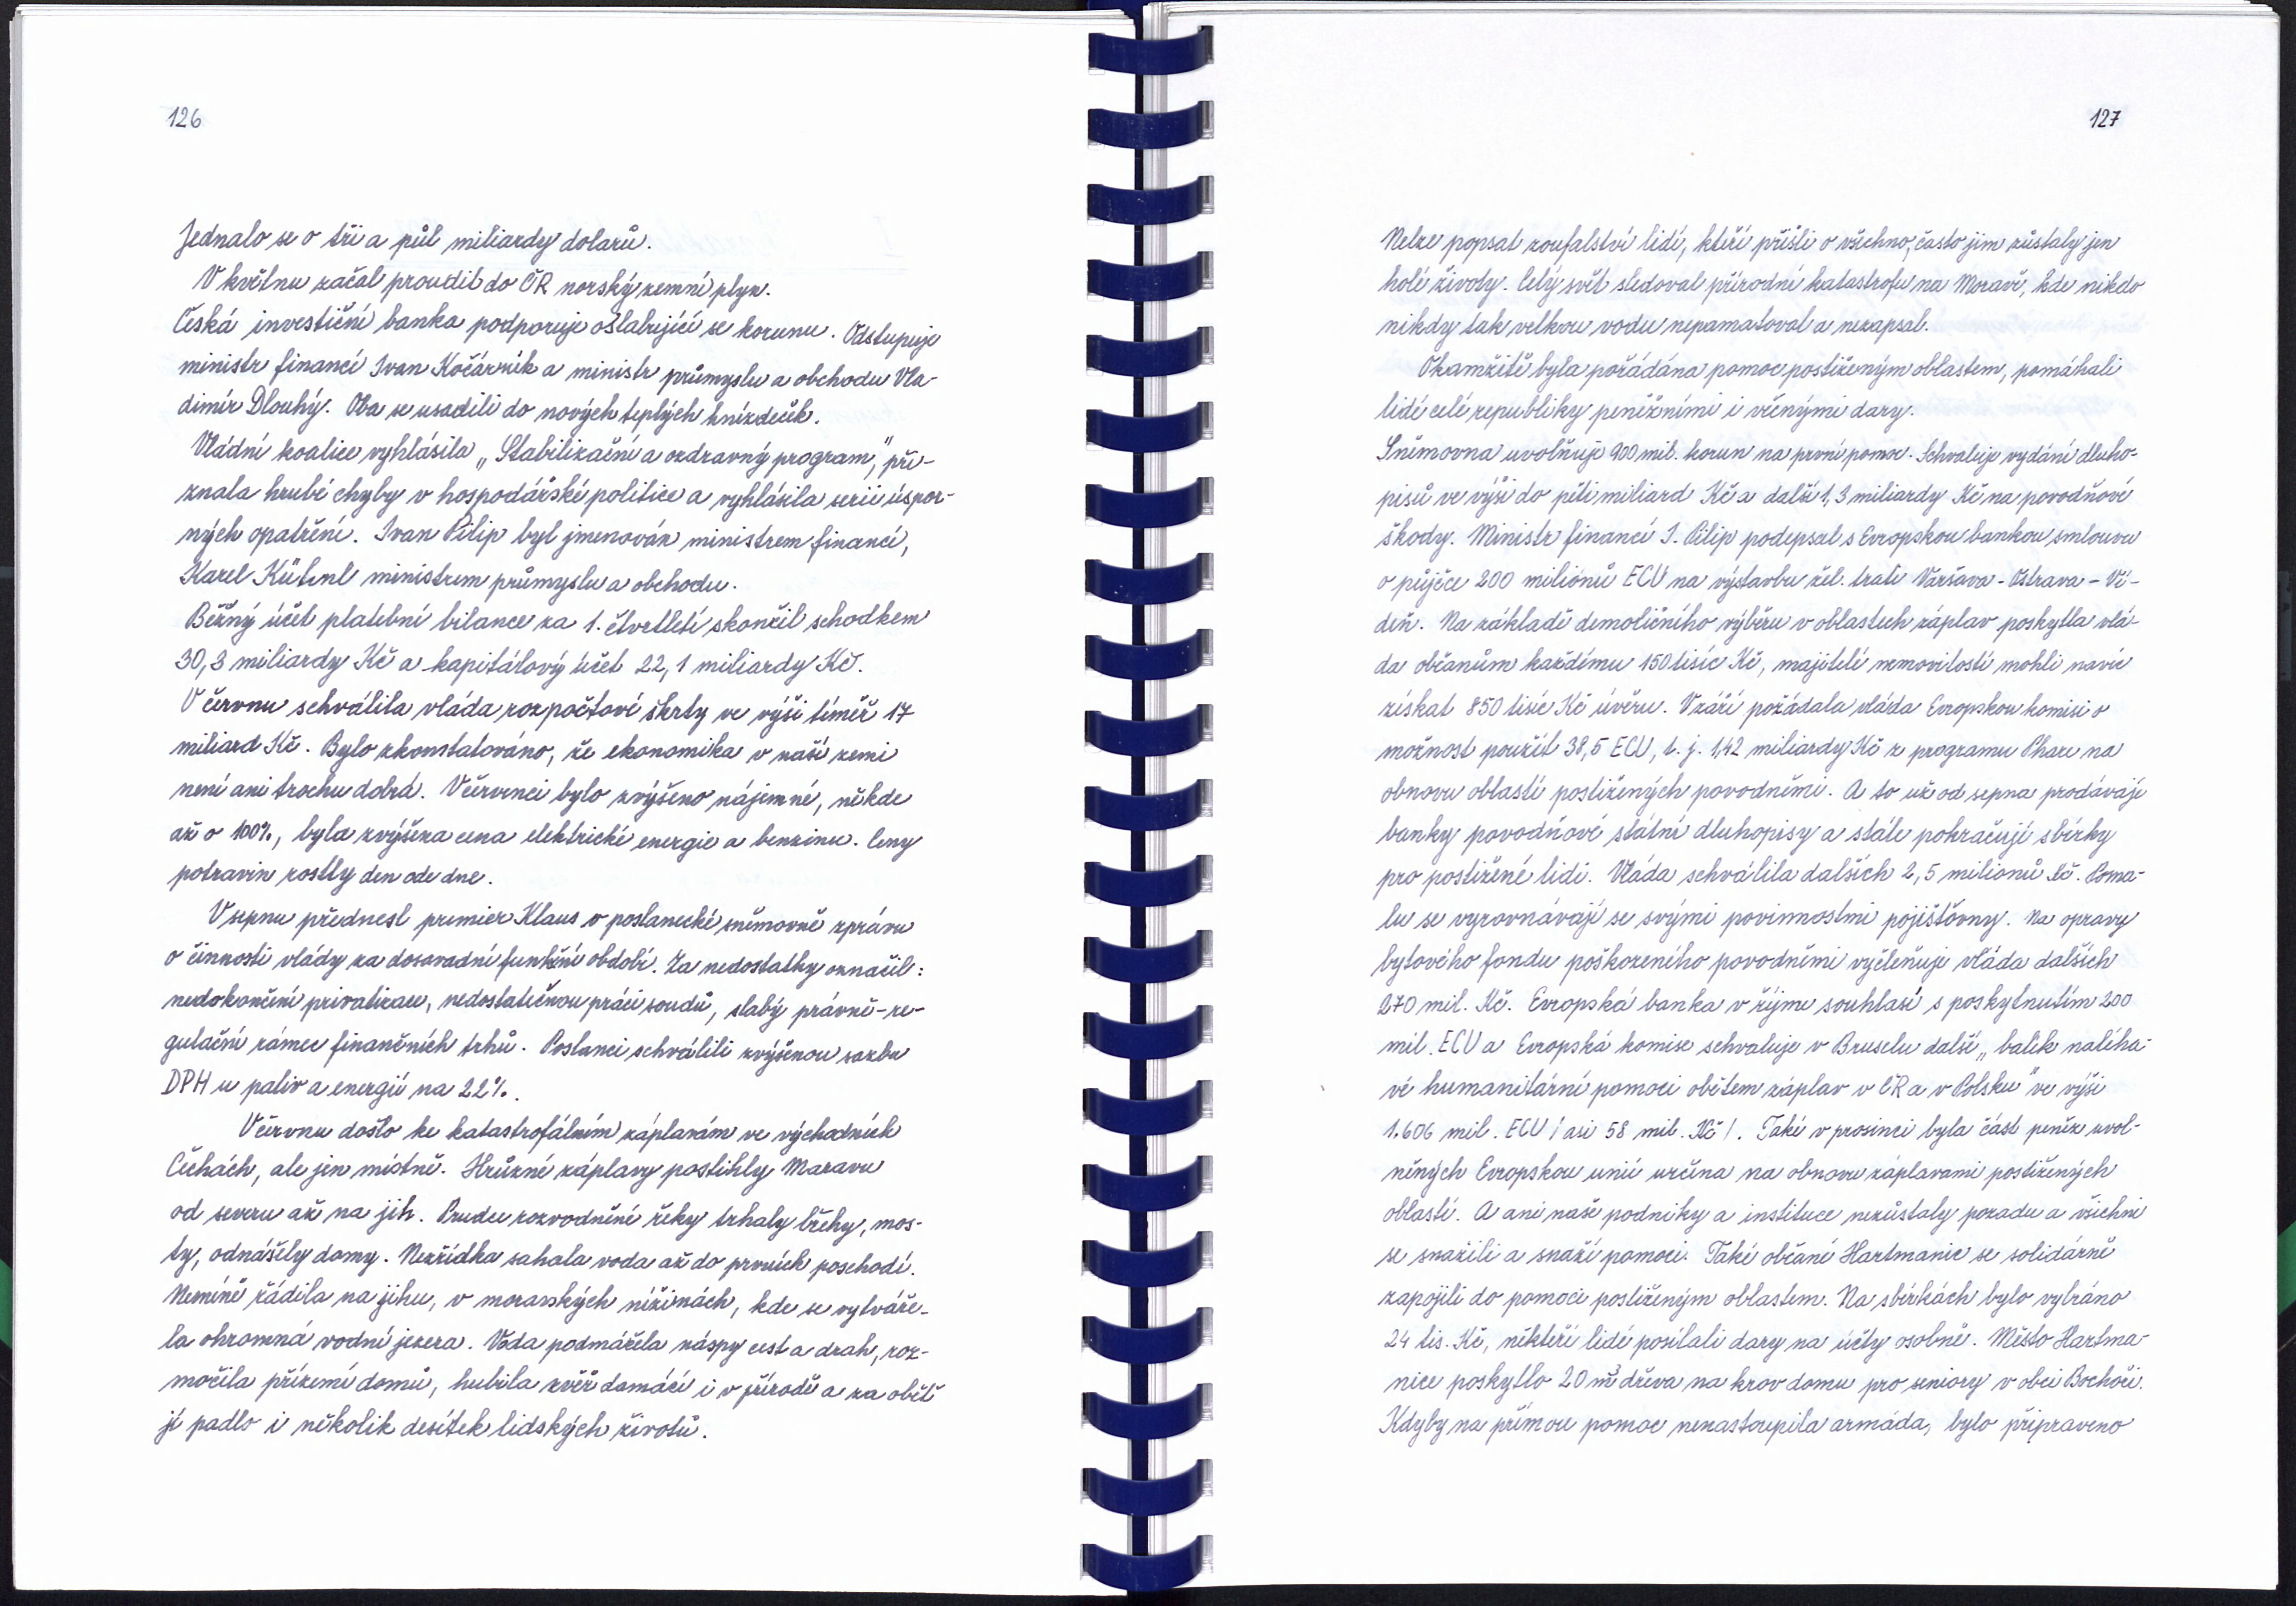 126
Jednalo se o tři a půl miliardy dolarů.
V květnu začal proudit do ČR norský zemní plyn.
Česká investiční banka podporuje oslabující se korunu. Odstupuje
ministr financí Ivan Kočárník a ministr průmyslu a obchodu Vla-
dimír Dlouhý. Oba se usadili do nových teplých hnízdeček.
Vládní koalice vyhlásila „Stabilizační a ozdravný program", při-
znala hrubé chyby v hospodářské politice a vyhlásila serii úspor-
ných opatření. Ivan Pilip byl jmenován ministrem financí,
Karel Kühnl ministrem průmyslu a obchodu.
Běžný účet platební bilance za 1. čtvrtletí skončil schodkem
30,3 miliardy Kč a kapitálový účet 22,1 miliardy Kč.
V červnu schválila vláda rozpočtové škrty ve výši téměř 17
miliard Kč. Bylo zkonstatováno, že ekonomika v naší zemi
není ani trochu dobrá. V červenci bylo zvýšeno nájemné, někde
až o 100%, byla zvýšena cena elektrické energie a benzinu. Ceny
potravin rostly den ode dne.
V srpnu přednesl premier Klaus v poslanecké sněmovně zprávu
o činnosti vlády za dosavadní funkční období. Za nedostatky označil:
nedokončení privatizace, nedostatečnou práci soudů, slabý právně-re-
gulační rámec finančních trhů. Poslanci schválili zvýšenou sazbu
DPH u paliv a energií na 22%.
V červnu došlo ke katastrofálním záplavám ve východních
Čechách, ale jen místně. Hrůzné záplavy postihly Moravu
od severu až na jih. Prudce rozvodněné řeky trhaly břehy, mos-
ty, odnášely domy. Nezřídka sahala voda až do prvních poschodí.
Neméně řádila na jihu, v moravských nížinách, kde se vytváře-
la ohromná vodní jezera. Voda podmáčela náspy cest a drah, roz-
močila přízemí domů, hubila zvěř domácí i v přírodě a za oběť
jí padlo i několik desítek lidských životů.
127
Nelze popsat zoufalství lidí, kteří přišli o všechno, často jim zůstaly jen
holé životy. Celý svět sledoval přírodní katastrofu na Moravě, kde nikdo
nikdy tak velkou vodu nepamatoval a nezapsal.
Okamžitě byla pořádána pomoc postiženým oblastem, pomáhali
lidé celé republiky peněžními i věcnými dary.
Sněmovna uvolňuje 900 mil. korun na první pomoc. Schvaluje vydání dluho-
pisů ve výši do pěti miliard Kč a další 1,3 miliardy Kč na povodňové
škody. Ministr financí I. Pilip podepsal s Evropskou bankou smlouvu
o půjčce 200 milionů ECU na výstavbu žel. trati Varšava - Ostrava - Ví-
deň. Na základě demoličního výběru v oblastech záplav poskytla vlá-
da občanům každému 150 tisíc Kč, majitelé nemovitostí mohli navíc
získat 850 tisíc Kč úvěru. V září požádala vláda Evropskou komisi o
možnost použít 38,5 ECU, t. j. 1,42 miliardy Kč z programu Phare na
obnovu oblastí postižených povodněmi. A to už od srpna prodávají
banky povodňové státní dluhopisy a stále pokračují sbírky
pro postižené lidi. Vláda schválila dalších 2,5 milionů Kč. Poma-
lu se vyrovnávají se svými povinnostmi pojišťovny. Na opravy
bytového fondu poškozeného povodněmi vyčleňuje vláda dalších
270 mil. Kč. Evropská banka v říjmu souhlasí s poskytnutím 200
mil. ECU a Evropská komise schvaluje v Bruselu další „balík naléha-
vé humanitární pomoci obětem záplav v ČR a v Polsku" ve výši
1.606 mil. ECU / asi 58 mil. Kč /. Také v prosinci byla část peněz uvol-
něných Evropskou unií určena na obnovu záplavami postižených
oblastí. A ani naše podniky a instituce nezůstaly pozadu a všichni
se snažili a snaží pomoci. Také občané Hartmanic se solidárně
zapojili do pomoci postiženým oblastem. Na sbírkách bylo vybráno
24 tis. Kč, někteří lidé posílali dary na účty osobně. Město Hartma-
nice poskytlo 20 m³ dřeva na krov domu pro seniory v obci Bochoři.
Kdyby na přímou pomoc nenastoupila armáda, bylo připraveno